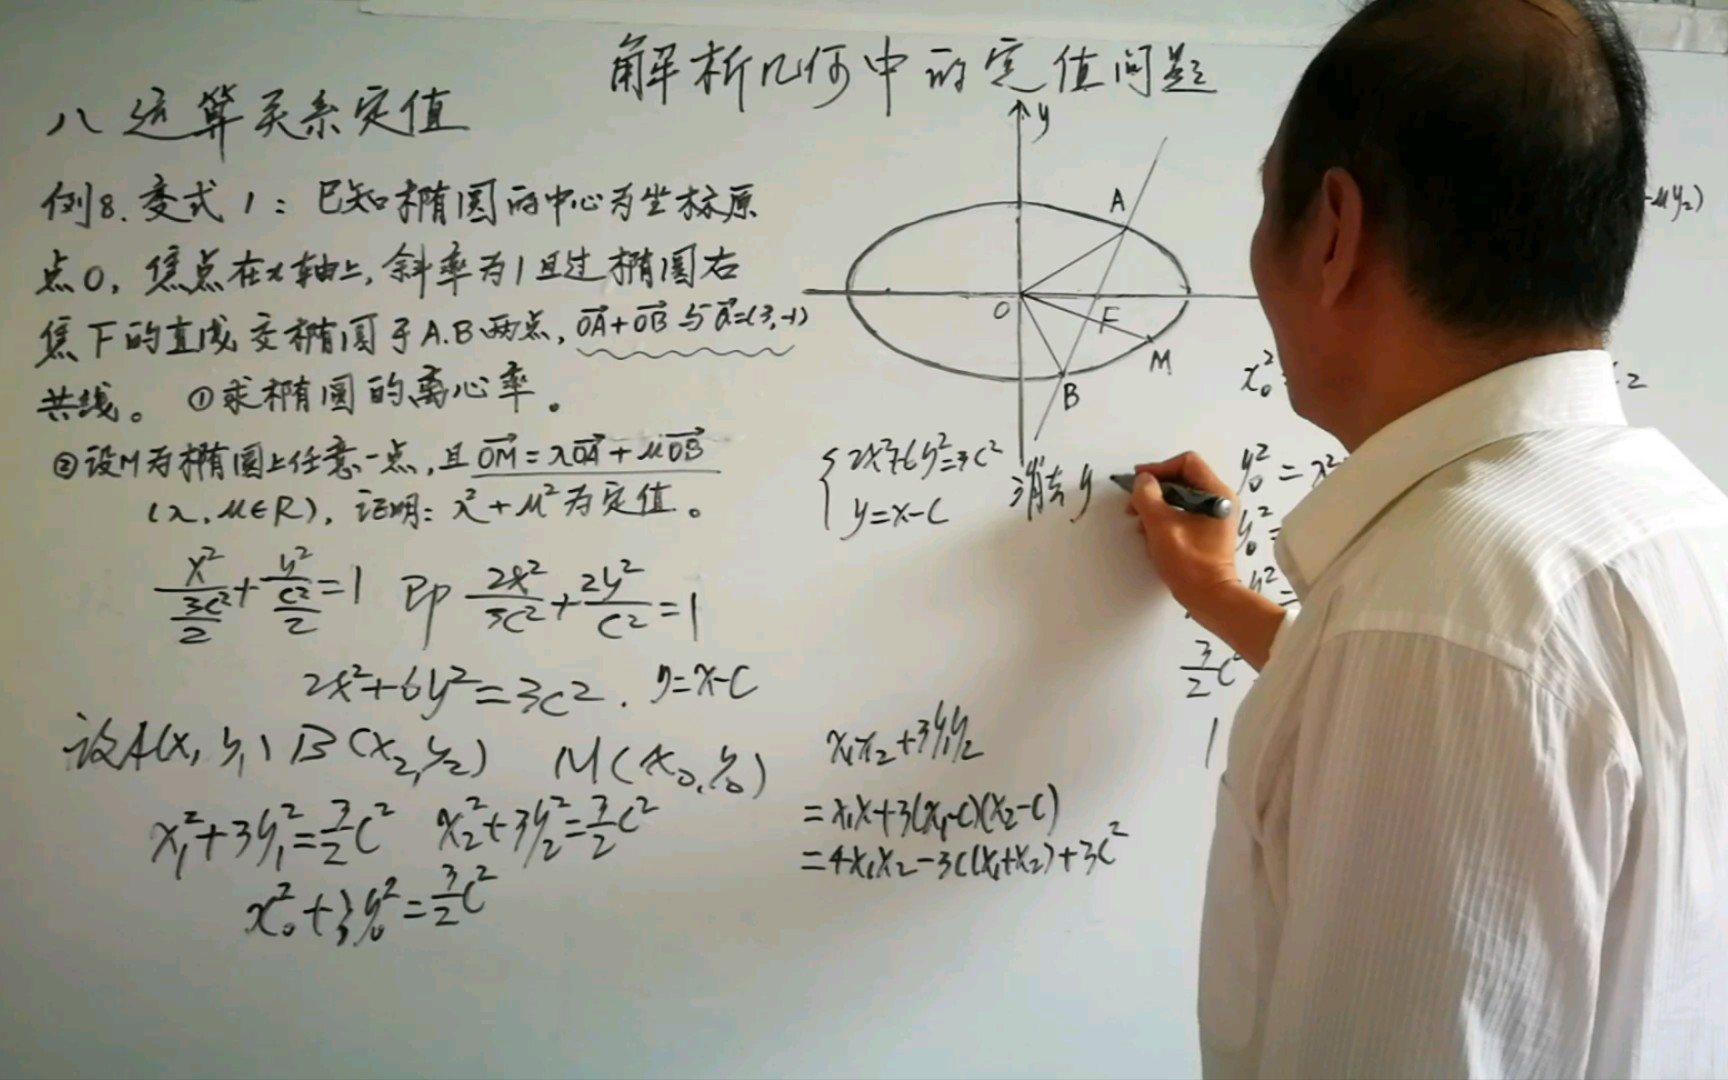 解析几何中的定值问题
八 运算关系定值
例8. 变式1: 已知椭圆的中心为坐标原
点O, 焦点在x轴上, 斜率为1且过椭圆右
焦下的直线交椭圆于A.B两点, OA+OB与a=(3,-1)
共线。 ①求椭圆的离心率。
②设M为椭圆上任意一点, 且OM=λOA+μOB
(λ, μ∈R), 证明: λ²+μ²为定值。
x²/(3c²/2)+y²/(c²/2)=1 即 2x²/3c²+2y²/c²=1
2x²+6y²=3c². y=x-c
设A(x₁y₁) B(x₂,y₂) M(x₀,y₀)
x₁²+3y₁²=3/2c² x₂²+3y₂²=3/2c²
x₀²+3y₀²=3/2c²
y
A
O
F
M
B
{2x²+6y²=3c²
y=x-c
消去y
x₁x₂+3y₁y₂
=x₁x+3(x₁-c)(x₂-c)
=4x₁x₂-3c(x₁+x₂)+3c²
μy₂)
x₀²
2
y₀²=λ²
y₀²=
y²=
3/2c²
1